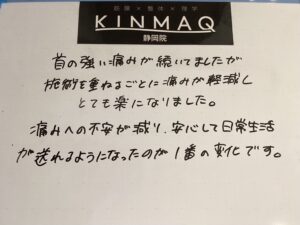 筋膜 × 整体 × 理学
KINMAQ
静岡院
首の強い痛みが続いてましたが
施術を重ねるごとに痛みが軽減し
とても楽になりました。
痛みへの不安が減り、安心して日常生活
が送れるようになったのが1番の変化です。